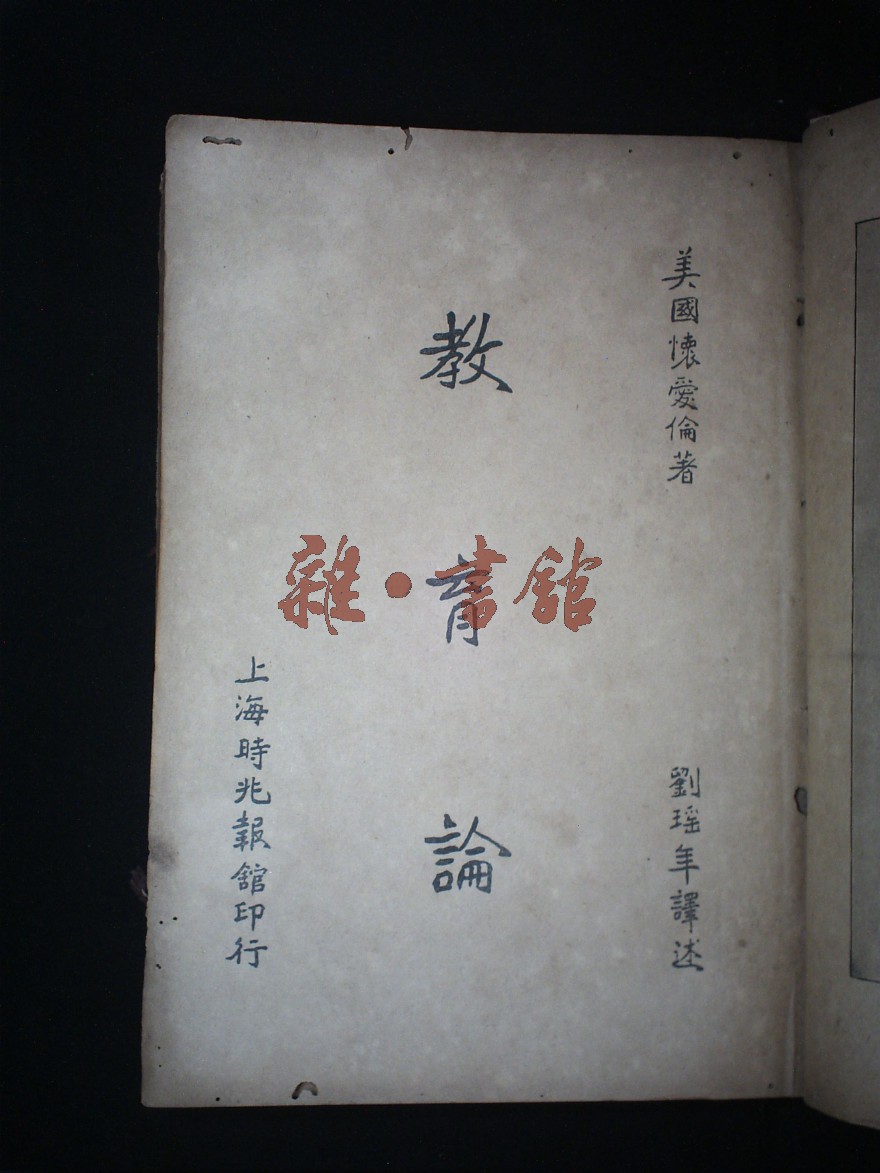 美國懷愛倫著
劉瑶年譯述
教育論
上海時兆報館印行
雜·書館